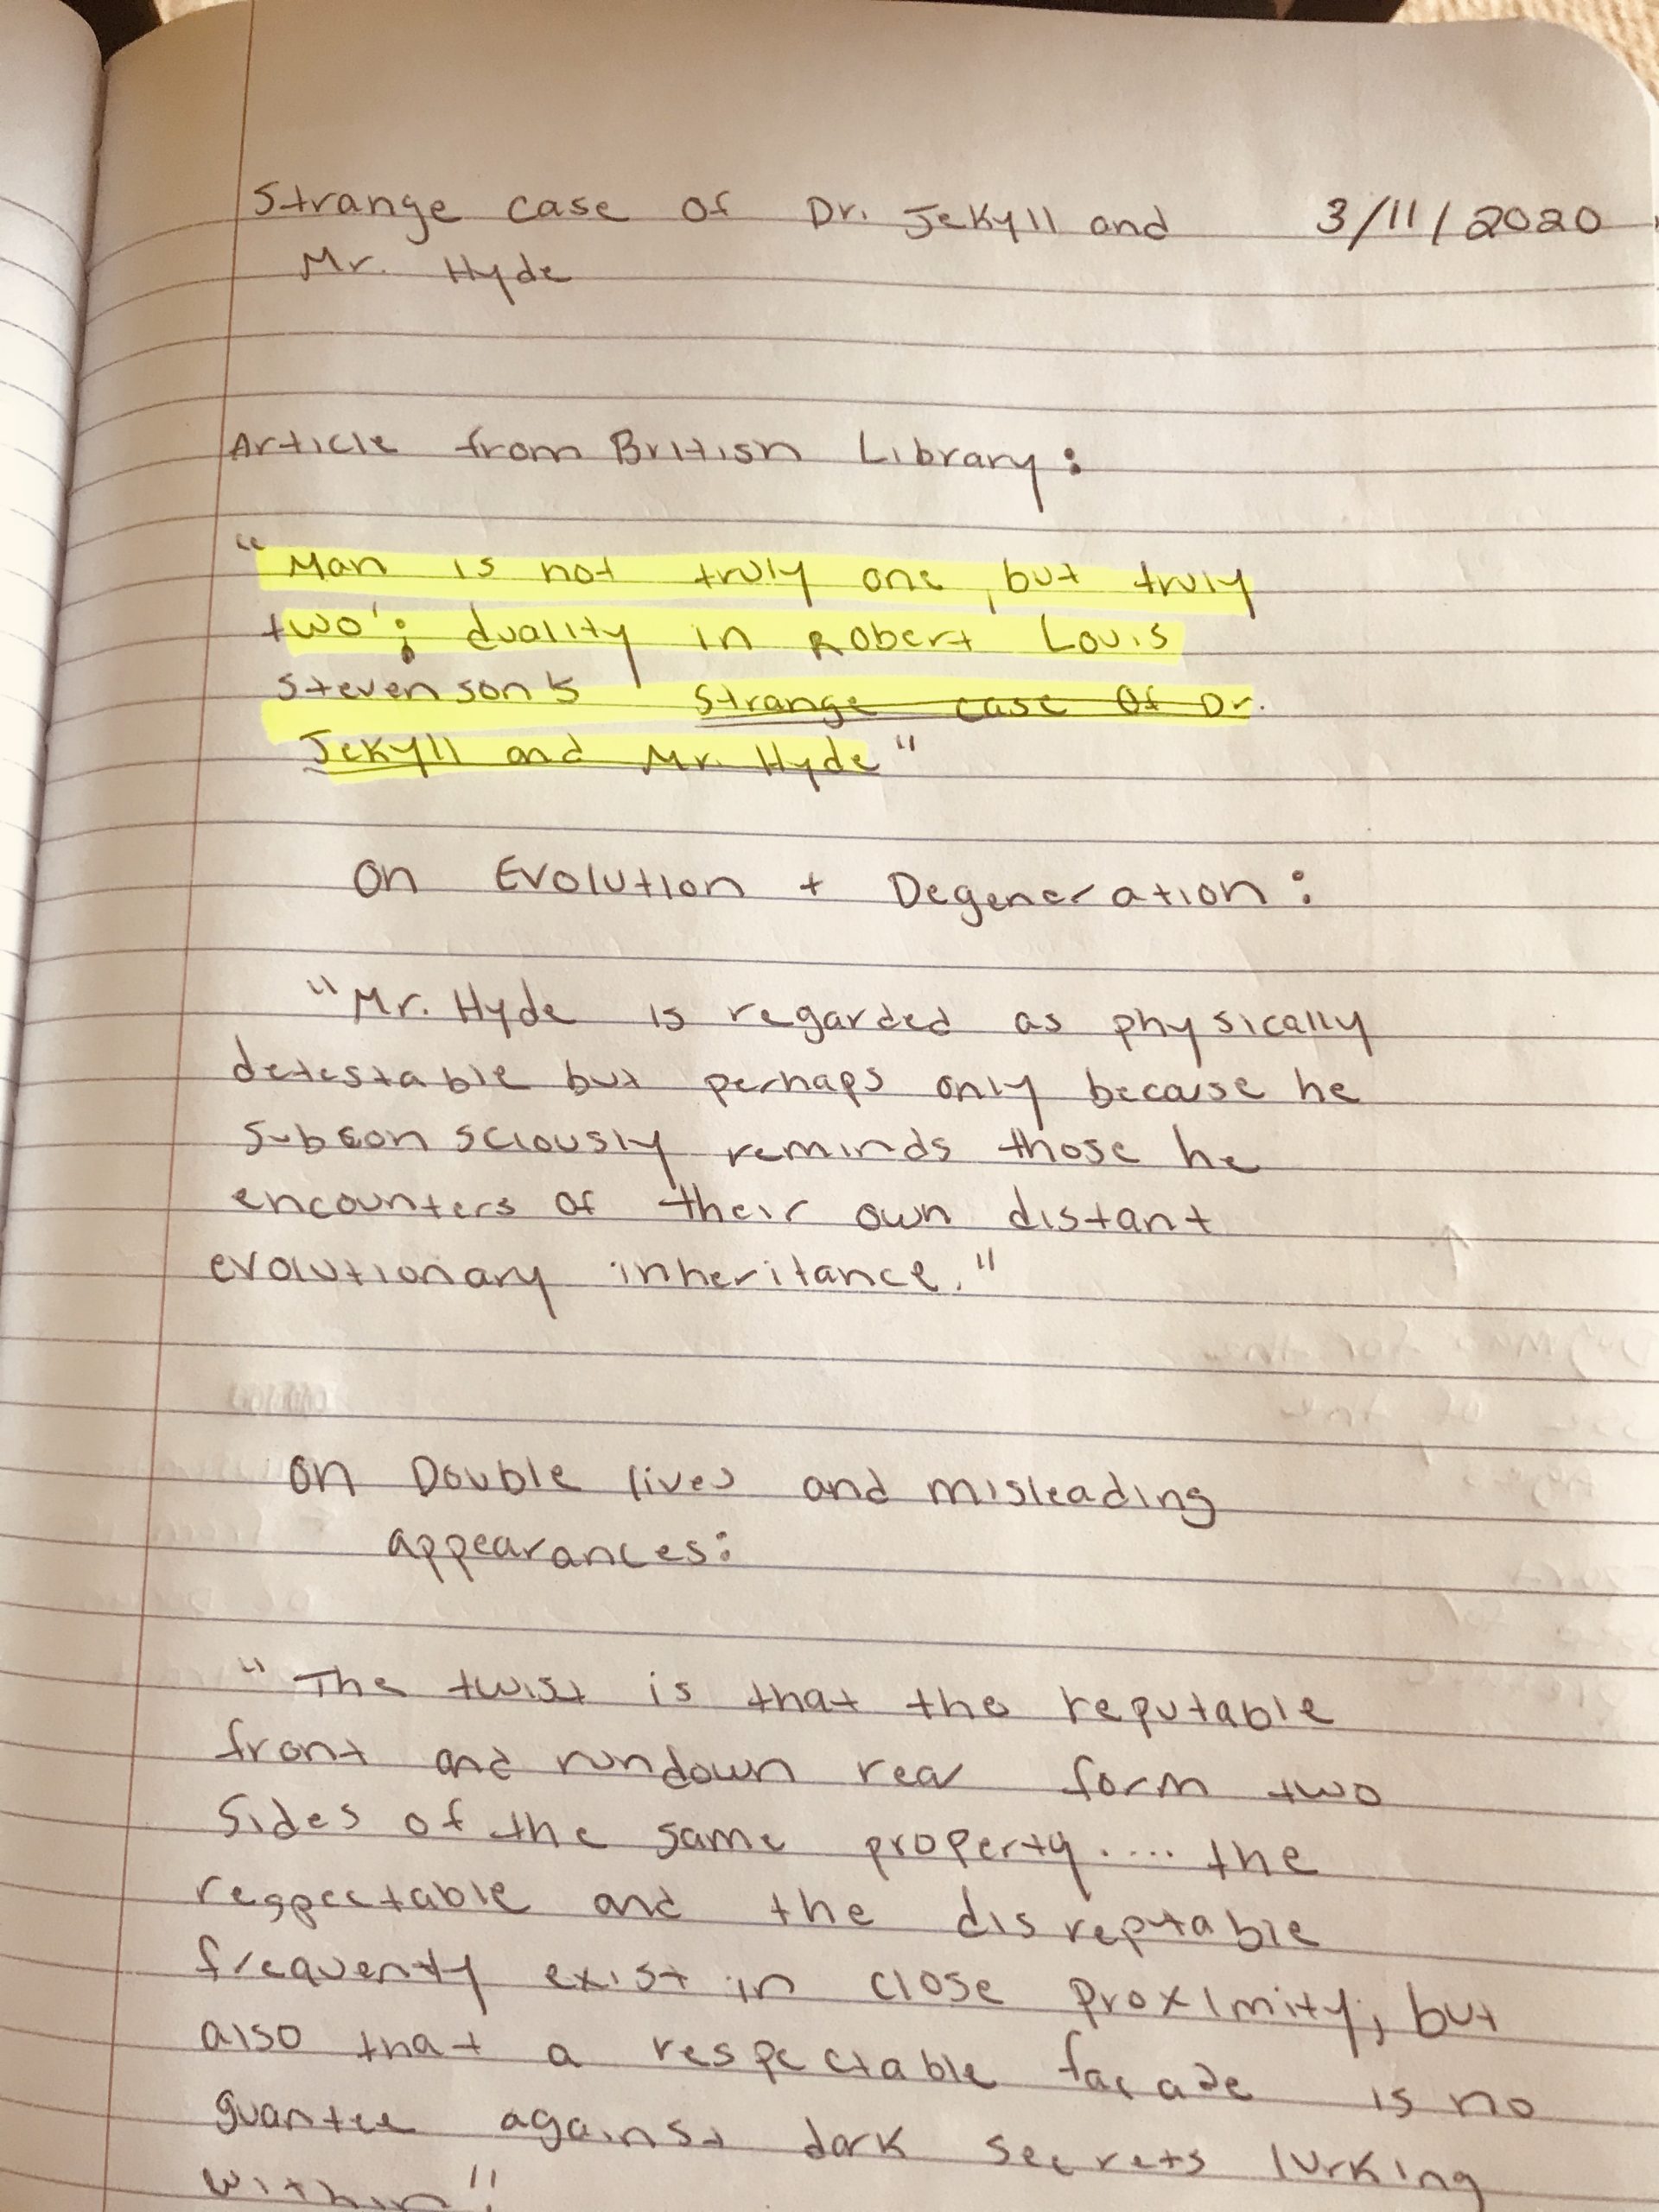 Strange case of Dr. Jekyll and 3/11/2020
Mr. Hyde
Article from British Library:
"Man is not truly one, but truly
two': duality in Robert Louis
Stevenson's Strange case of Dr.
Jekyll and Mr. Hyde"
On Evolution + Degeneration:
"Mr. Hyde is regarded as physically
detestable but perhaps only because he
subconsciously reminds those he
encounters of their own distant
evolutionary inheritance."
On Double lives and misleading
appearances:
"The twist is that the reputable
front and rundown rear form two
sides of the same property.... the
respectable and the disreptable
frequently exist in close proximity, but
also that a respectable facade is no
guantee against dark secrets lurking
within"